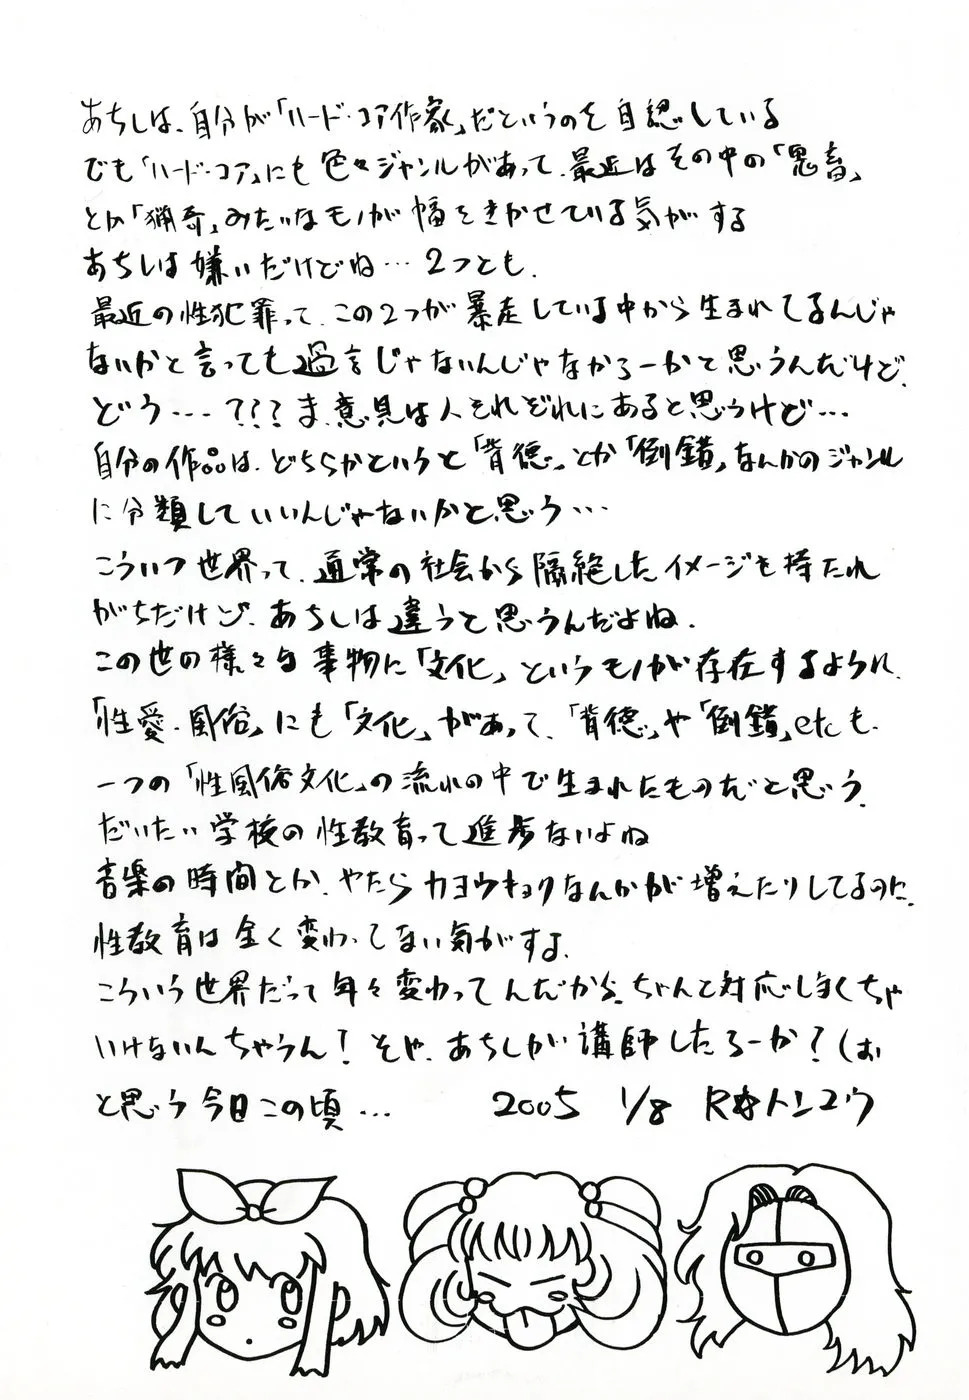 あちしは、自分が「ハード・コア作家」だというのを自認している
でも「ハード・コア」にも色々ジャンルがあって、最近はその中の「鬼畜」
とか「猟奇」みたいなモノが幅をきかせている気がする
あちしは嫌いだけどね…2つとも.
最近の性犯罪って、この2つが暴走している中から生まれてるんじゃ
ないかと言っても過言じゃないんじゃなかろーかと思うんだけど、
どう…???ま、意見は人それぞれにあると思うけど…
自分の作品は、どちらかというと「背徳」とか「倒錯」なんかのジャンル
に分類していいんじゃないかと思う…
こういう世界って、通常の社会から隔絶したイメージを持たれ
がちだけど、あちしは違うと思うんだよね.
この世の様々な事物に「文化」というモノが存在するように、
「性愛・風俗」にも「文化」があって、「背徳」や「倒錯」etcも、
一つの「性風俗文化」の流れの中で生まれたものだと思う、
だいたい学校の性教育って進歩ないよね
音楽の時間とか、やたらカヨウキョクなんかが増えたりしてるのに、
性教育は全く変わってない気がするよ、
こういう世界だって年々変わってんだから、ちゃんと対応しなくちゃ
いけないんちゃうん!そや、あちしが講師したろーか?(お
と思う今日この頃… 2005 1/8 R トンコウ